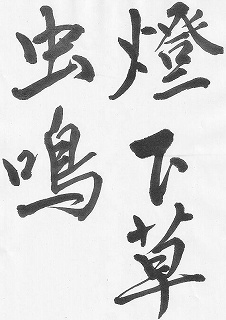 燈下草
虫鳴